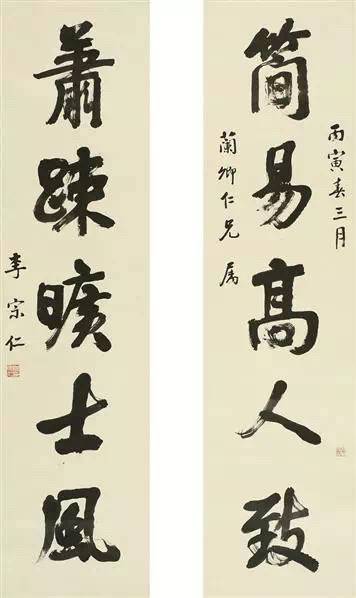 丙寅春三月
簡易高人致
蘭卿仁兄属
蕭踈曠士風
李宗仁